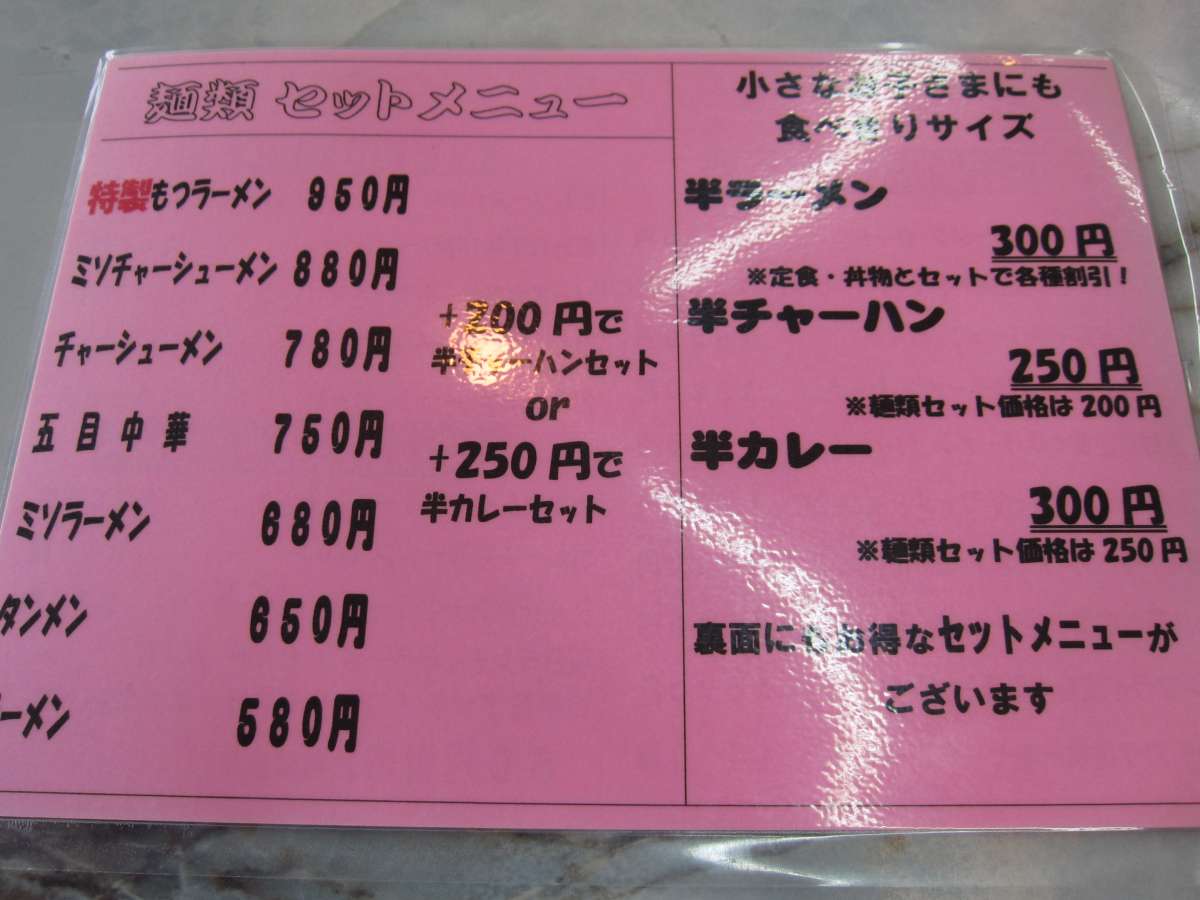 麺類 セットメニュー
特製もつラーメン 950円
ミソチャーシューメン 880円
チャーシューメン 780円
五目中華 750円
ミソラーメン 680円
タンメン 650円
ーメン 580円
+200円で
半チャーハンセット
or
+250円で
半カレーセット
小さなお子さまにも
食べきりサイズ
半ラーメン
300円
※定食・丼物とセットで各種割引!
半チャーハン
250円
※麺類セット価格は200円
半カレー
300円
※麺類セット価格は250円
裏面にもお得なセットメニューが
ございます